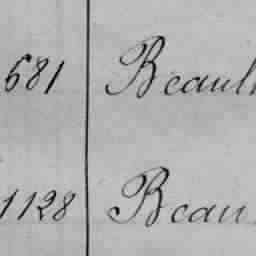 681 Beault
1128 Beau